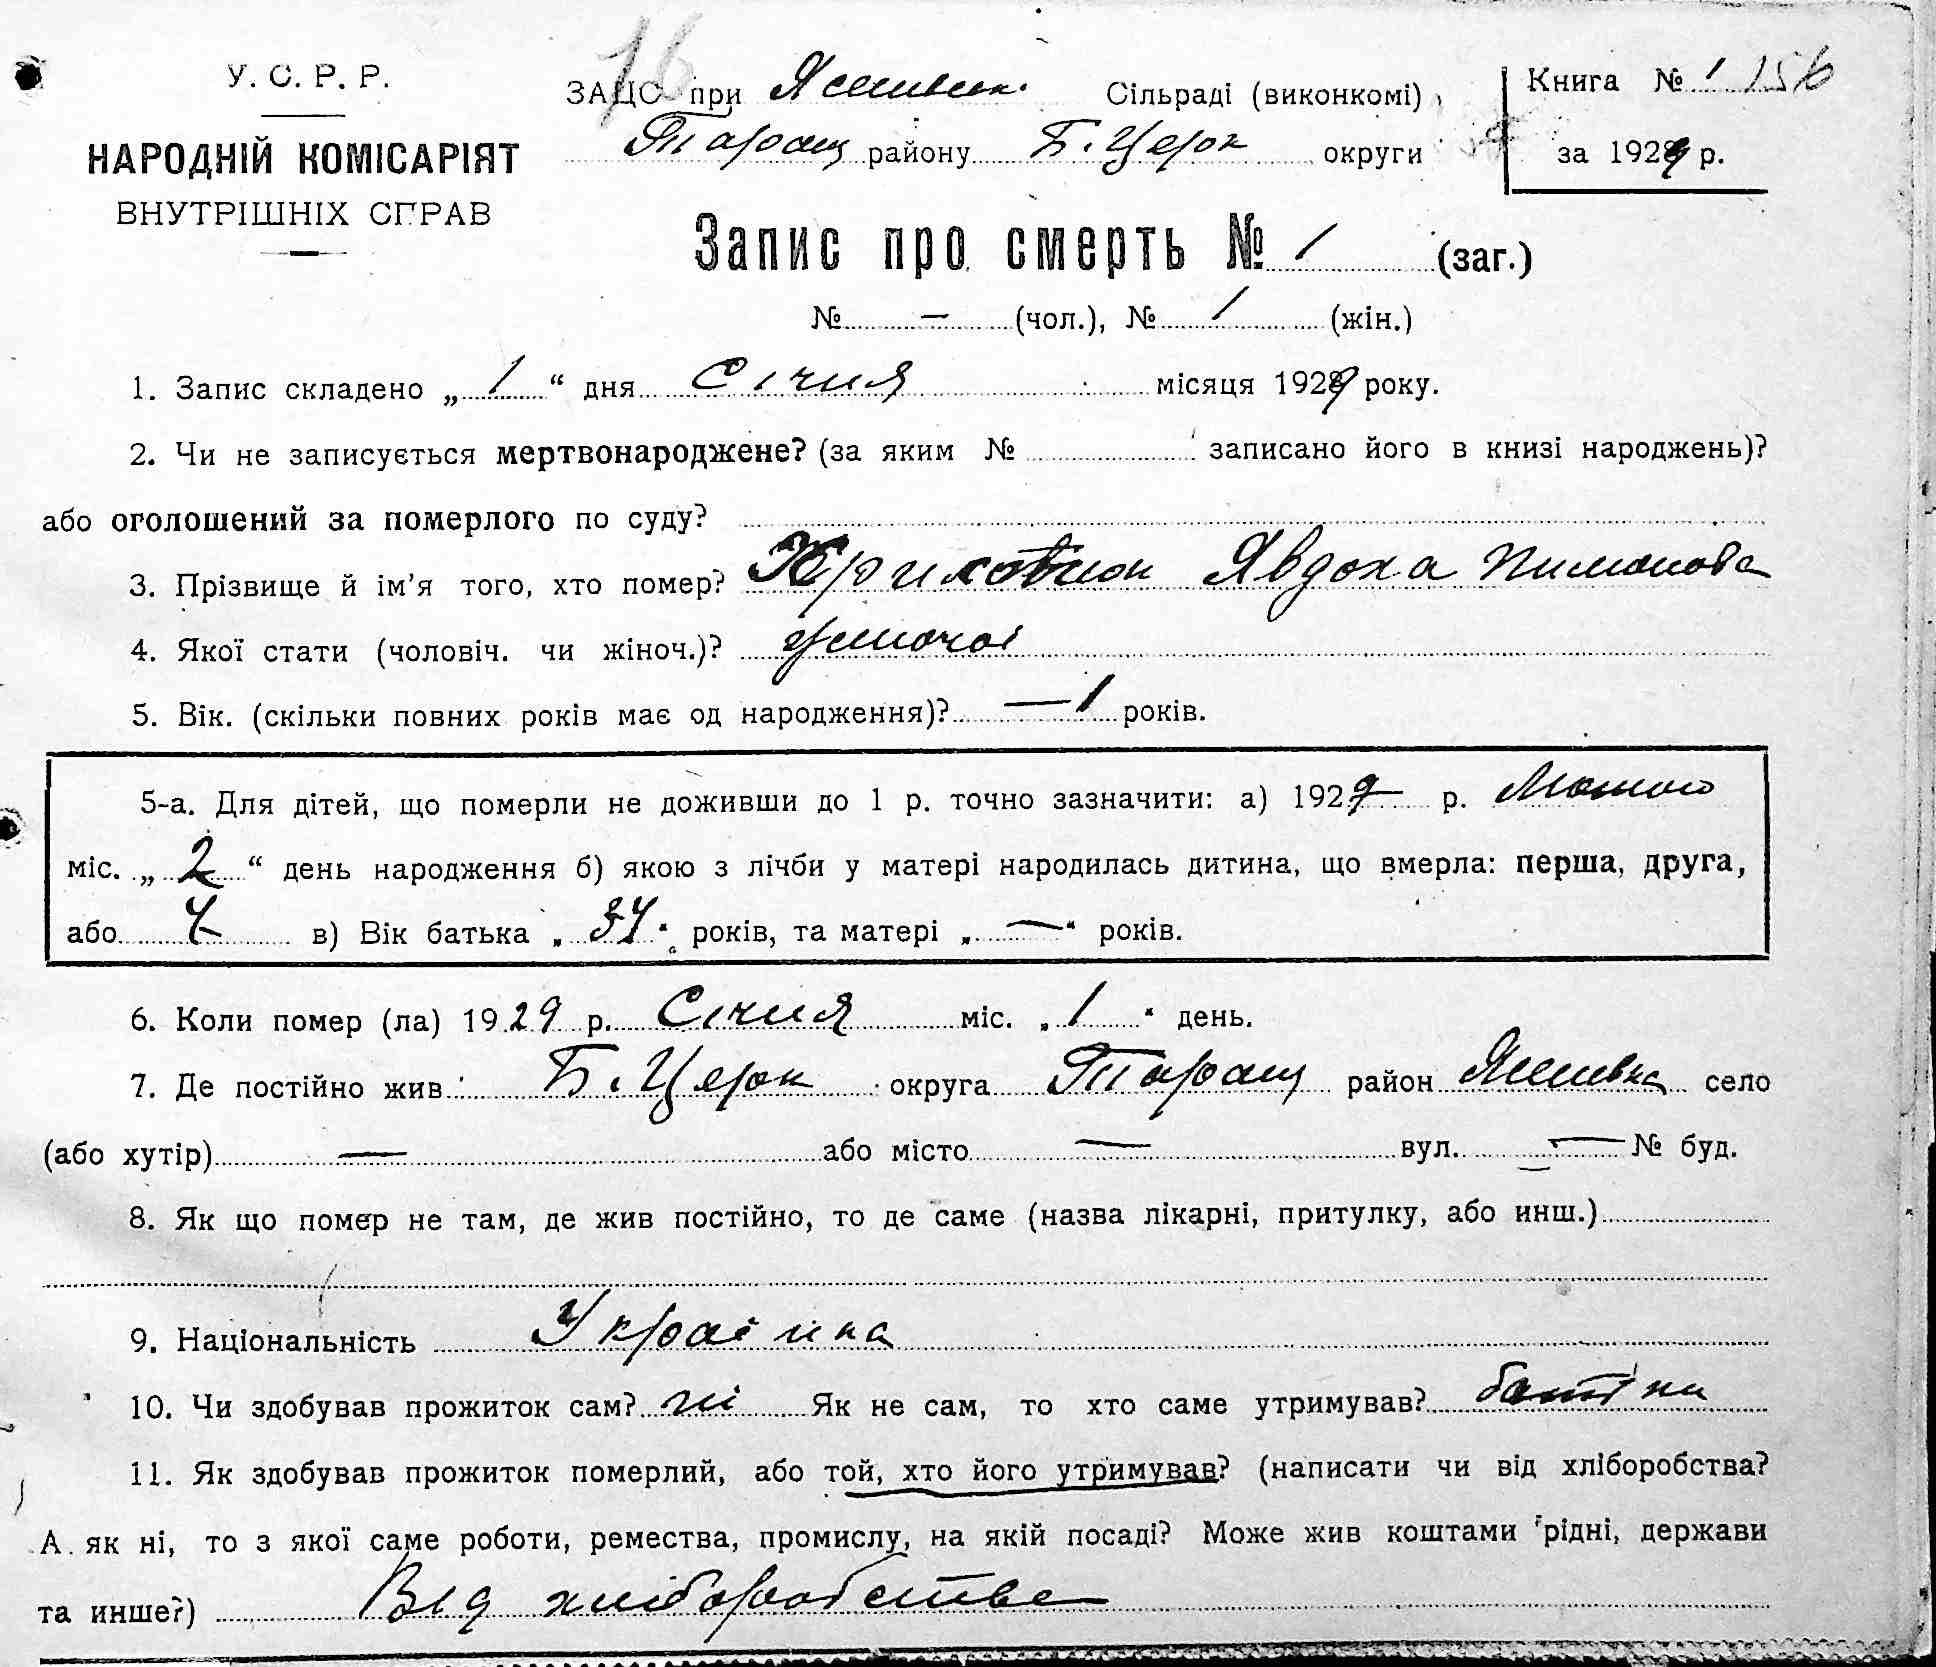 У. С. Р. Р.
НАРОДНІЙ КОМІСАРІЯТ
ВНУТРІШНІХ СПРАВ
16
ЗАЦС при Ясшвськ. Сільраді (виконкомі)
Таращ району Б. Церк округи
Книга № 1 156
за 1929 р.
Запис про смерть № 1 (заг.)
№ — (чол.), № 1 (жін.)
1. Запис складено „ 1 “ дня Січня місяця 1929 року.
2. Чи не записується мертвонароджене? (за яким № записано його в книзі народжень)?
або оголошений за померлого по суду?
3. Прізвище й ім'я того, хто помер? Явдоха Пимонова
4. Якої стати (чоловіч. чи жіноч.)? жіночої
5. Вік. (скільки повних років має од народження)? — 1 років.
5-а. Для дітей, що померли не доживши до 1 р. точно зазначити: а) 192 р.
міс. „ 2 “ день народження б) якою з лічби у матері народилась дитина, що вмерла: перша, друга,
або 4 в) Вік батька „ 34 “ років, та матері „ — “ років.
6. Коли помер (ла) 19 29 р. Січня міс. „ 1 “ день.
7. Де постійно жив Б. Церк округа Таращ район село
(або хутір) — або місто — вул. — № буд.
8. Як що помер не там, де жив постійно, то де саме (назва лікарні, притулку, або инш.)
9. Національність Украінка
10. Чи здобував прожиток сам? ні Як не сам, то хто саме утримував? батьки
11. Як здобував прожиток померлий, або той, хто його утримував? (написати чи від хліборобства?
А як ні, то з якої саме роботи, ремества, промислу, на якій посаді? Може жив коштами рідні, держави
та инше?) Від хліборобства